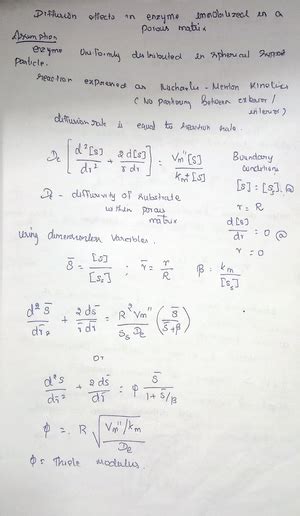 Diffusion effects in enzyme immobilized in a
porous matrix
Assumption
enzyme Uniformly distributed in spherical support
particle.
reaction expressed as Michaelis - Menten Kinetics
( No partioning between exterior /
interior)
diffusion rate is equal to reaction rate.
De [ d²[s]/dr² + 2 d[s]/r dr ] = Vm"[s] / Km+[s]
Boundary
conditions
[s] = [s]s @
r = R
d[s]/dr = 0 @
r = 0
De - diffusivity of substrate
within porous
matrix
using dimensionless variables.
S̄ = [s]/[ss] ; r̄ = r/R β = km/[ss]
d²S̄/dr̄² + 2 dS̄/r̄ dr̄ = R² Vm"/Ss De ( S̄/S̄+β )
or
d²s/dr̄² + 2 ds̄/dr̄ = φ S̄/1+S̄/β
φ = R √ Vm"/Km / De
φ = Thiele modulus.